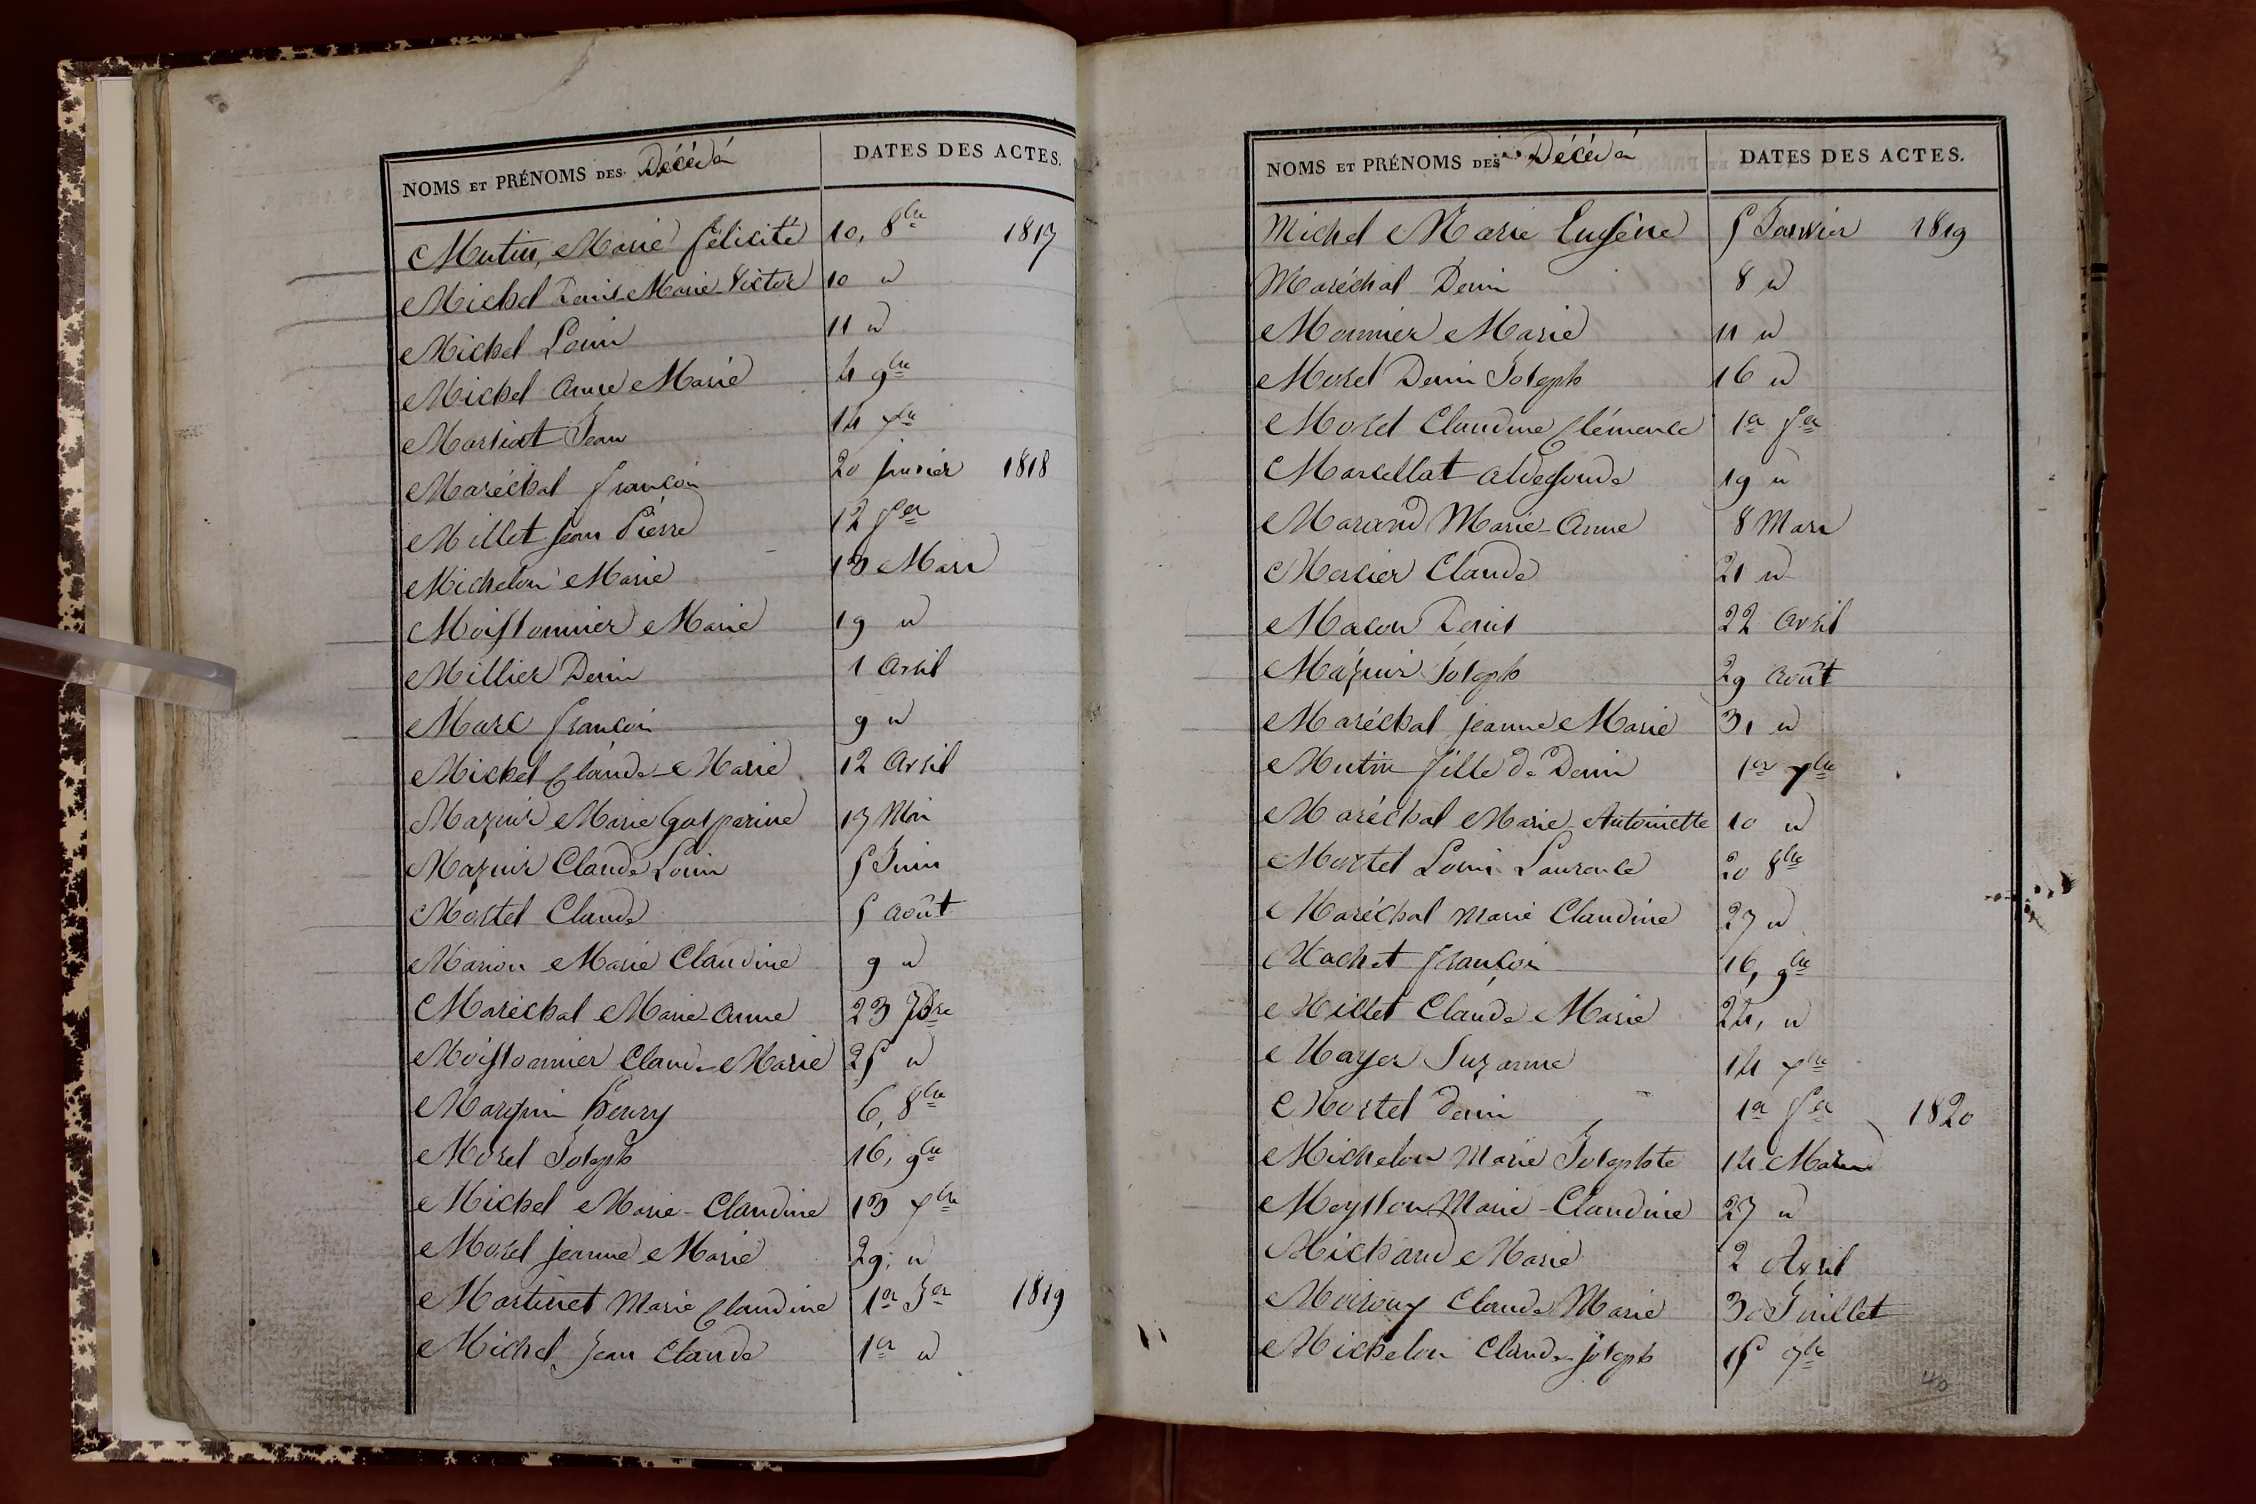 NOMS ET PRÉNOMS DES Décédés DATES DES ACTES.
Mutin, Marie félicité 10, 8bre 1817
Michel Denis Marie Victor 10 "
Michel Louis 11 "
Michel anne Marie 4 9bre
Jean 14 xbre
Maréchal françois 20 janvier 1818
Millet jean Pierre 12 fer
Michelon Marie 13 Mars
Moissonnier Marie 19 "
Millier Denis 1 avril
Marc françois 9 "
Michel Claude Marie 12 avril
Mazuir Marie gasparine 17 Mai
Mazuir Claude Louis 5 Juin
Mortel Claude 5 août
Marion Marie Claudine 9 "
Maréchal Marie-anne 23 7bre
Moissonnier Claude Marie 25 "
henry 6, 8bre
Morel Joseph 16, 9bre
Michel Marie-Claudine 13 xbre
Morel jeanne Marie 29, "
Martinet Marie Claudine 1er Jer 1819
Michel Jean Claude 1er "
NOMS ET PRÉNOMS DES Décédés DATES DES ACTES.
Michel Marie Eugénie 5 Janvier 1819
Maréchal Denis 8 "
Monnier Marie 11 "
Morel Denis Joseph 16 "
Morel Claudine Clémence 1er fer
Marcellat aldegonde 19 "
Marand Marie-anne 8 Mars
Mercier Claude 21 "
Macon Denis 22 avril
Mazuir Joseph 29 août
Maréchal jeanne Marie 31 "
Mutin fille de Denis 1er 7bre
Maréchal Marie Antoinette 10 "
Mortel Louis Laurence 20 8bre
Maréchal Marie Claudine 27 "
Machet françois 16, 9bre
Millet Claude Marie 24, "
Mayer Suzanne 14 xbre
Mortel denis 1er fer 1820
Michelon Marie Josephte 14 Mars
Meysson Marie-Claudine 27 "
Michaud Marie 2 Avril
Moiroux Claude Marie 30 Juillet
Michelon Claude joseph 15 7bre
40